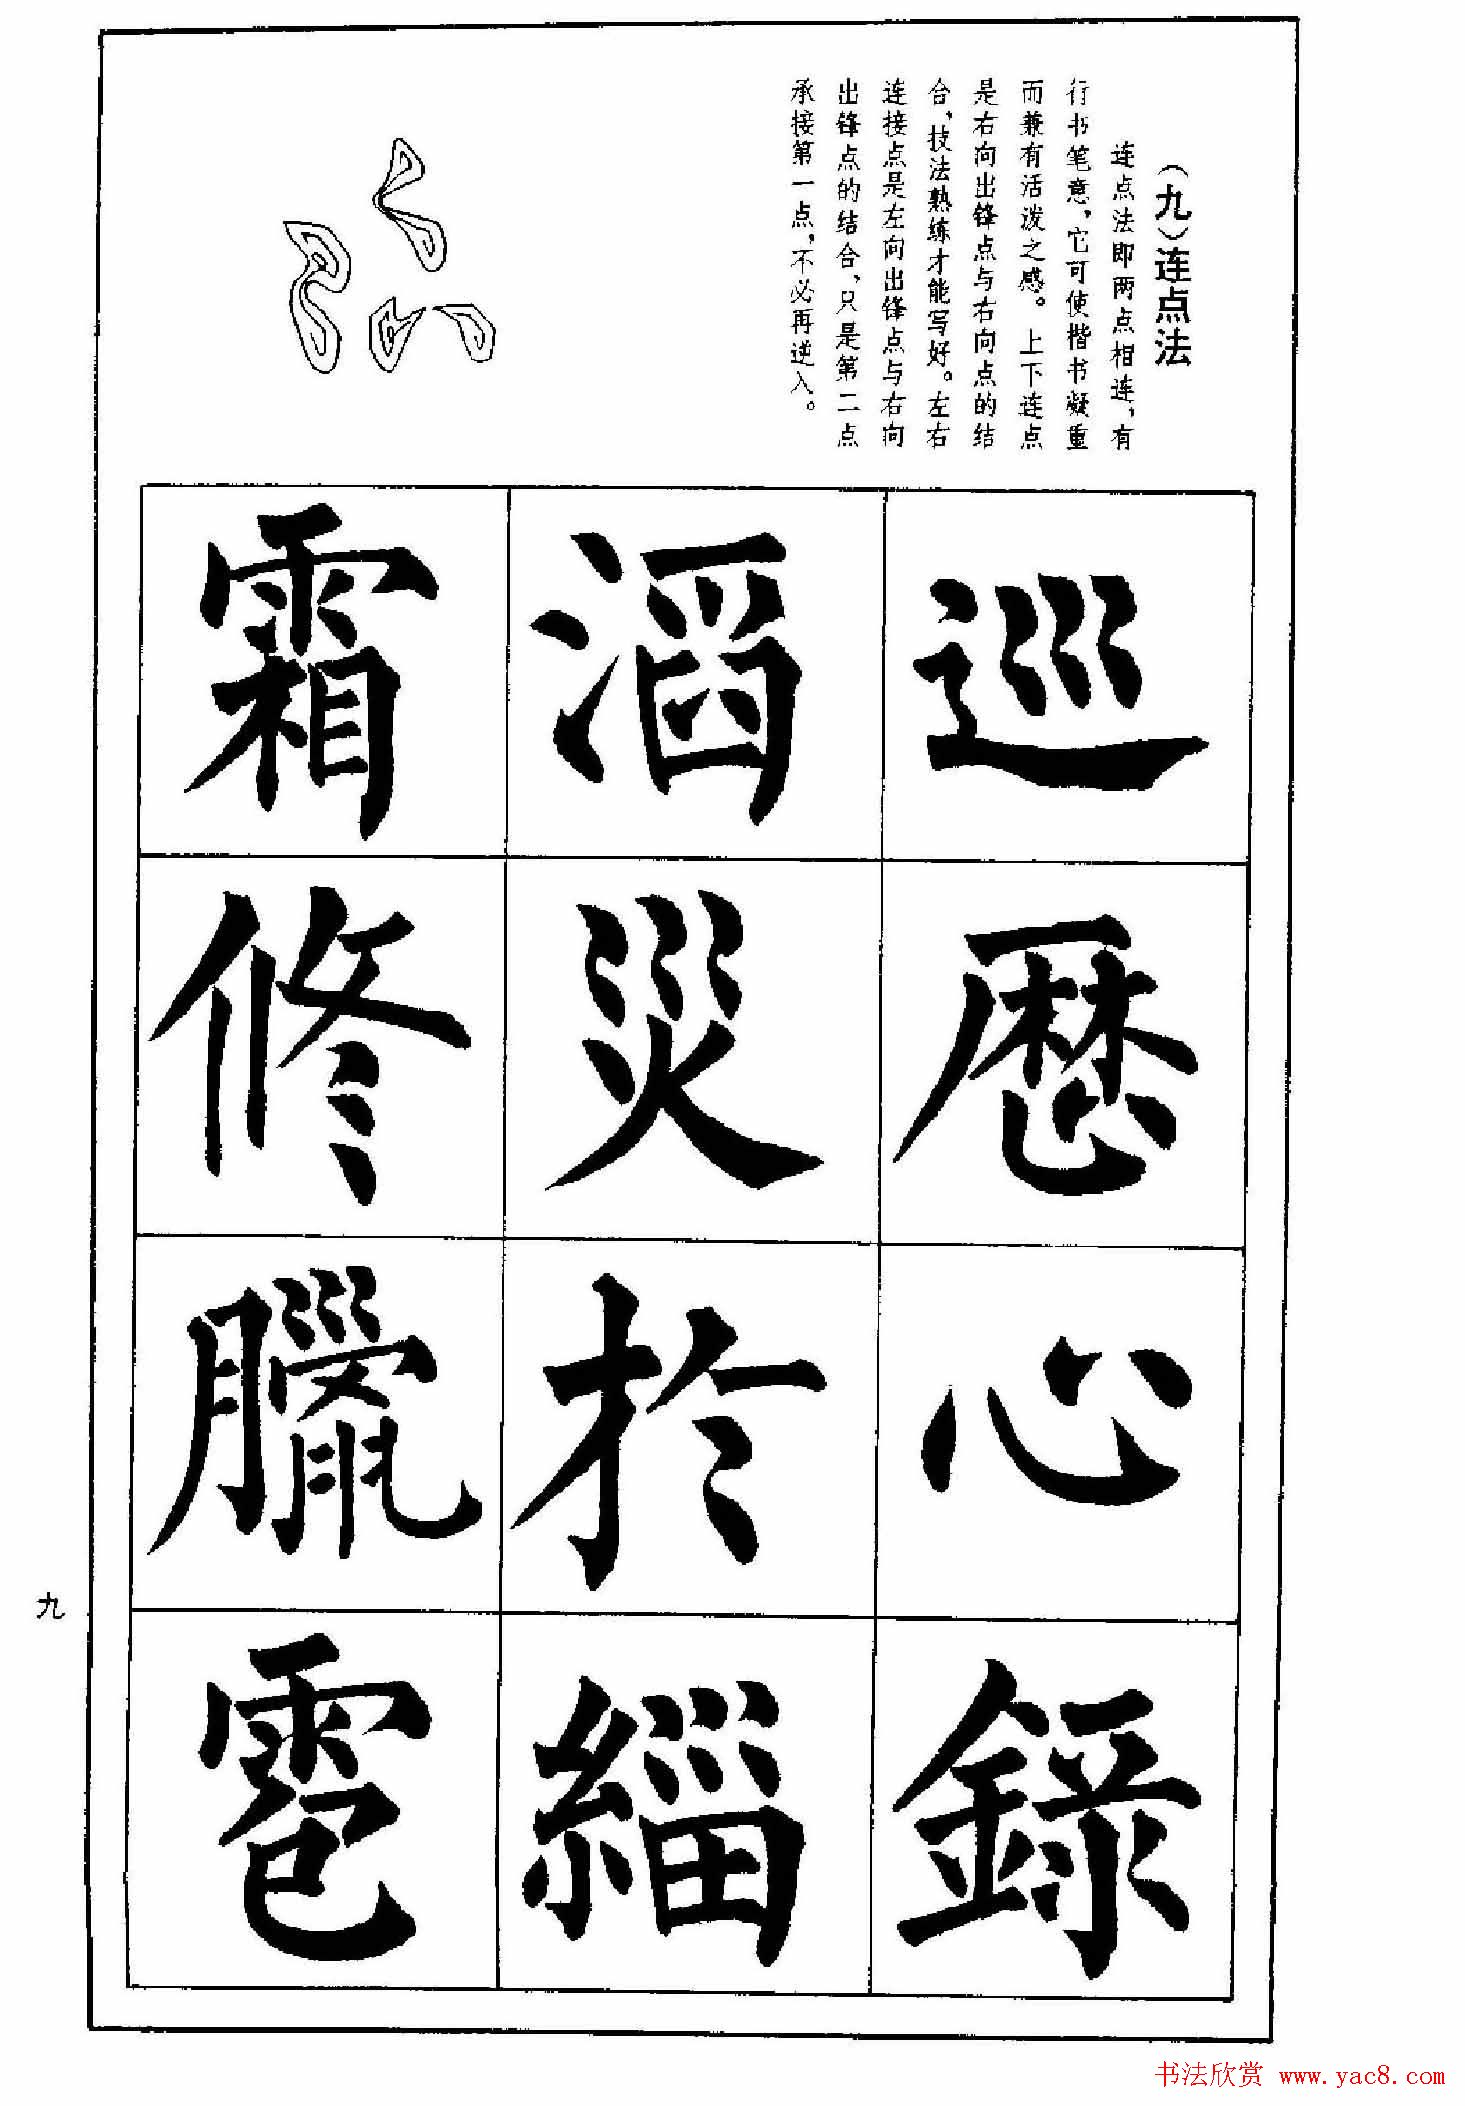 （九）连点法
连点法即两点相连，有
行书笔意，它可使楷书凝重
而兼有活泼之感。上下连点
是右向出锋点与右向点的结
合，技法熟练才能写好。左右
连接点是左向出锋点与右向
出锋点的结合，只是第二点
承接第一点，不必再逆入。
巡歷心録
滔災於緇
霜修臘雹
九
书法欣赏 www.yac8.com